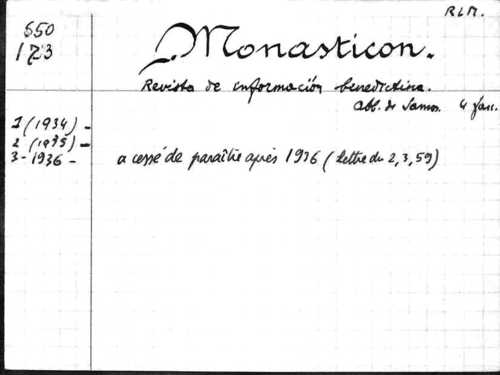 R L M.
550
173
Monasticon.
Revista de información benedictina.
abb. de Samos. 4 fasc.
1 (1934) -
2 (1935) -
3 - 1936 - a cessé de paraître après 1936 (Lettre du 2,3,59)